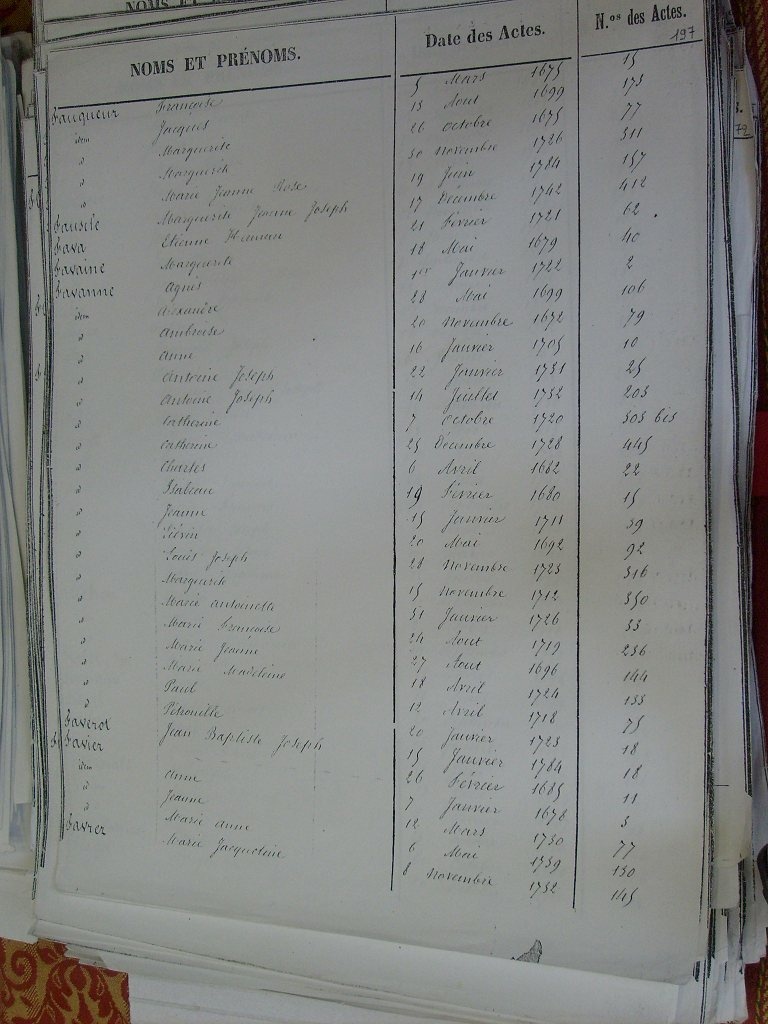 NOMS ET PRÉNOMS. Date des Actes. N.os des Actes.
197
Fauqueur Françoise 5 Mars 1675 15
idem Jacques 13 Aout 1699 173
d Marguerite 26 octobre 1675 77
d Marguerite 30 novembre 1726 311
d Marie Jeanne Rose 19 Juin 1784 157
Fausile Marguerite Jeanne Joseph 17 Décembre 1742 412
Fava Etienne 21 Février 1721 62
Favaine Marguerite 18 Mai 1679 40
Favanne Agnès 1er Janvier 1722 2
idem Alexandre 28 Mai 1699 106
d Ambroise 20 novembre 1672 79
d Anne 16 Janvier 1705 10
d Antoine Joseph 22 Janvier 1731 25
d Antoine Joseph 14 Juillet 1732 203
d Catherine 7 octobre 1720 303 bis
d Catherine 25 Décembre 1728 445
d Charles 6 Avril 1682 22
d Isabeau 19 Février 1680 15
d Jeanne 15 Janvier 1711 39
d Liévin 20 Mai 1692 92
d Louis Joseph 28 novembre 1723 316
d Marguerite 15 novembre 1712 350
d Marie Antoinette 31 Janvier 1726 33
d Marie Françoise 24 Aout 1719 236
d Marie Jeanne 27 Aout 1696 144
d Marie Madeleine 18 Avril 1724 133
d Paul 12 Avril 1718 75
d Pétronille 20 Janvier 1723 18
Faverot Jean Baptiste Joseph 15 Janvier 1784 18
Favier 26 Février 1685 11
idem Anne 7 Janvier 1678 3
d Jeanne 12 Mars 1730 77
d Marie Anne 6 Mai 1739 130
Favrer Marie Jacqueline 8 novembre 1732 145